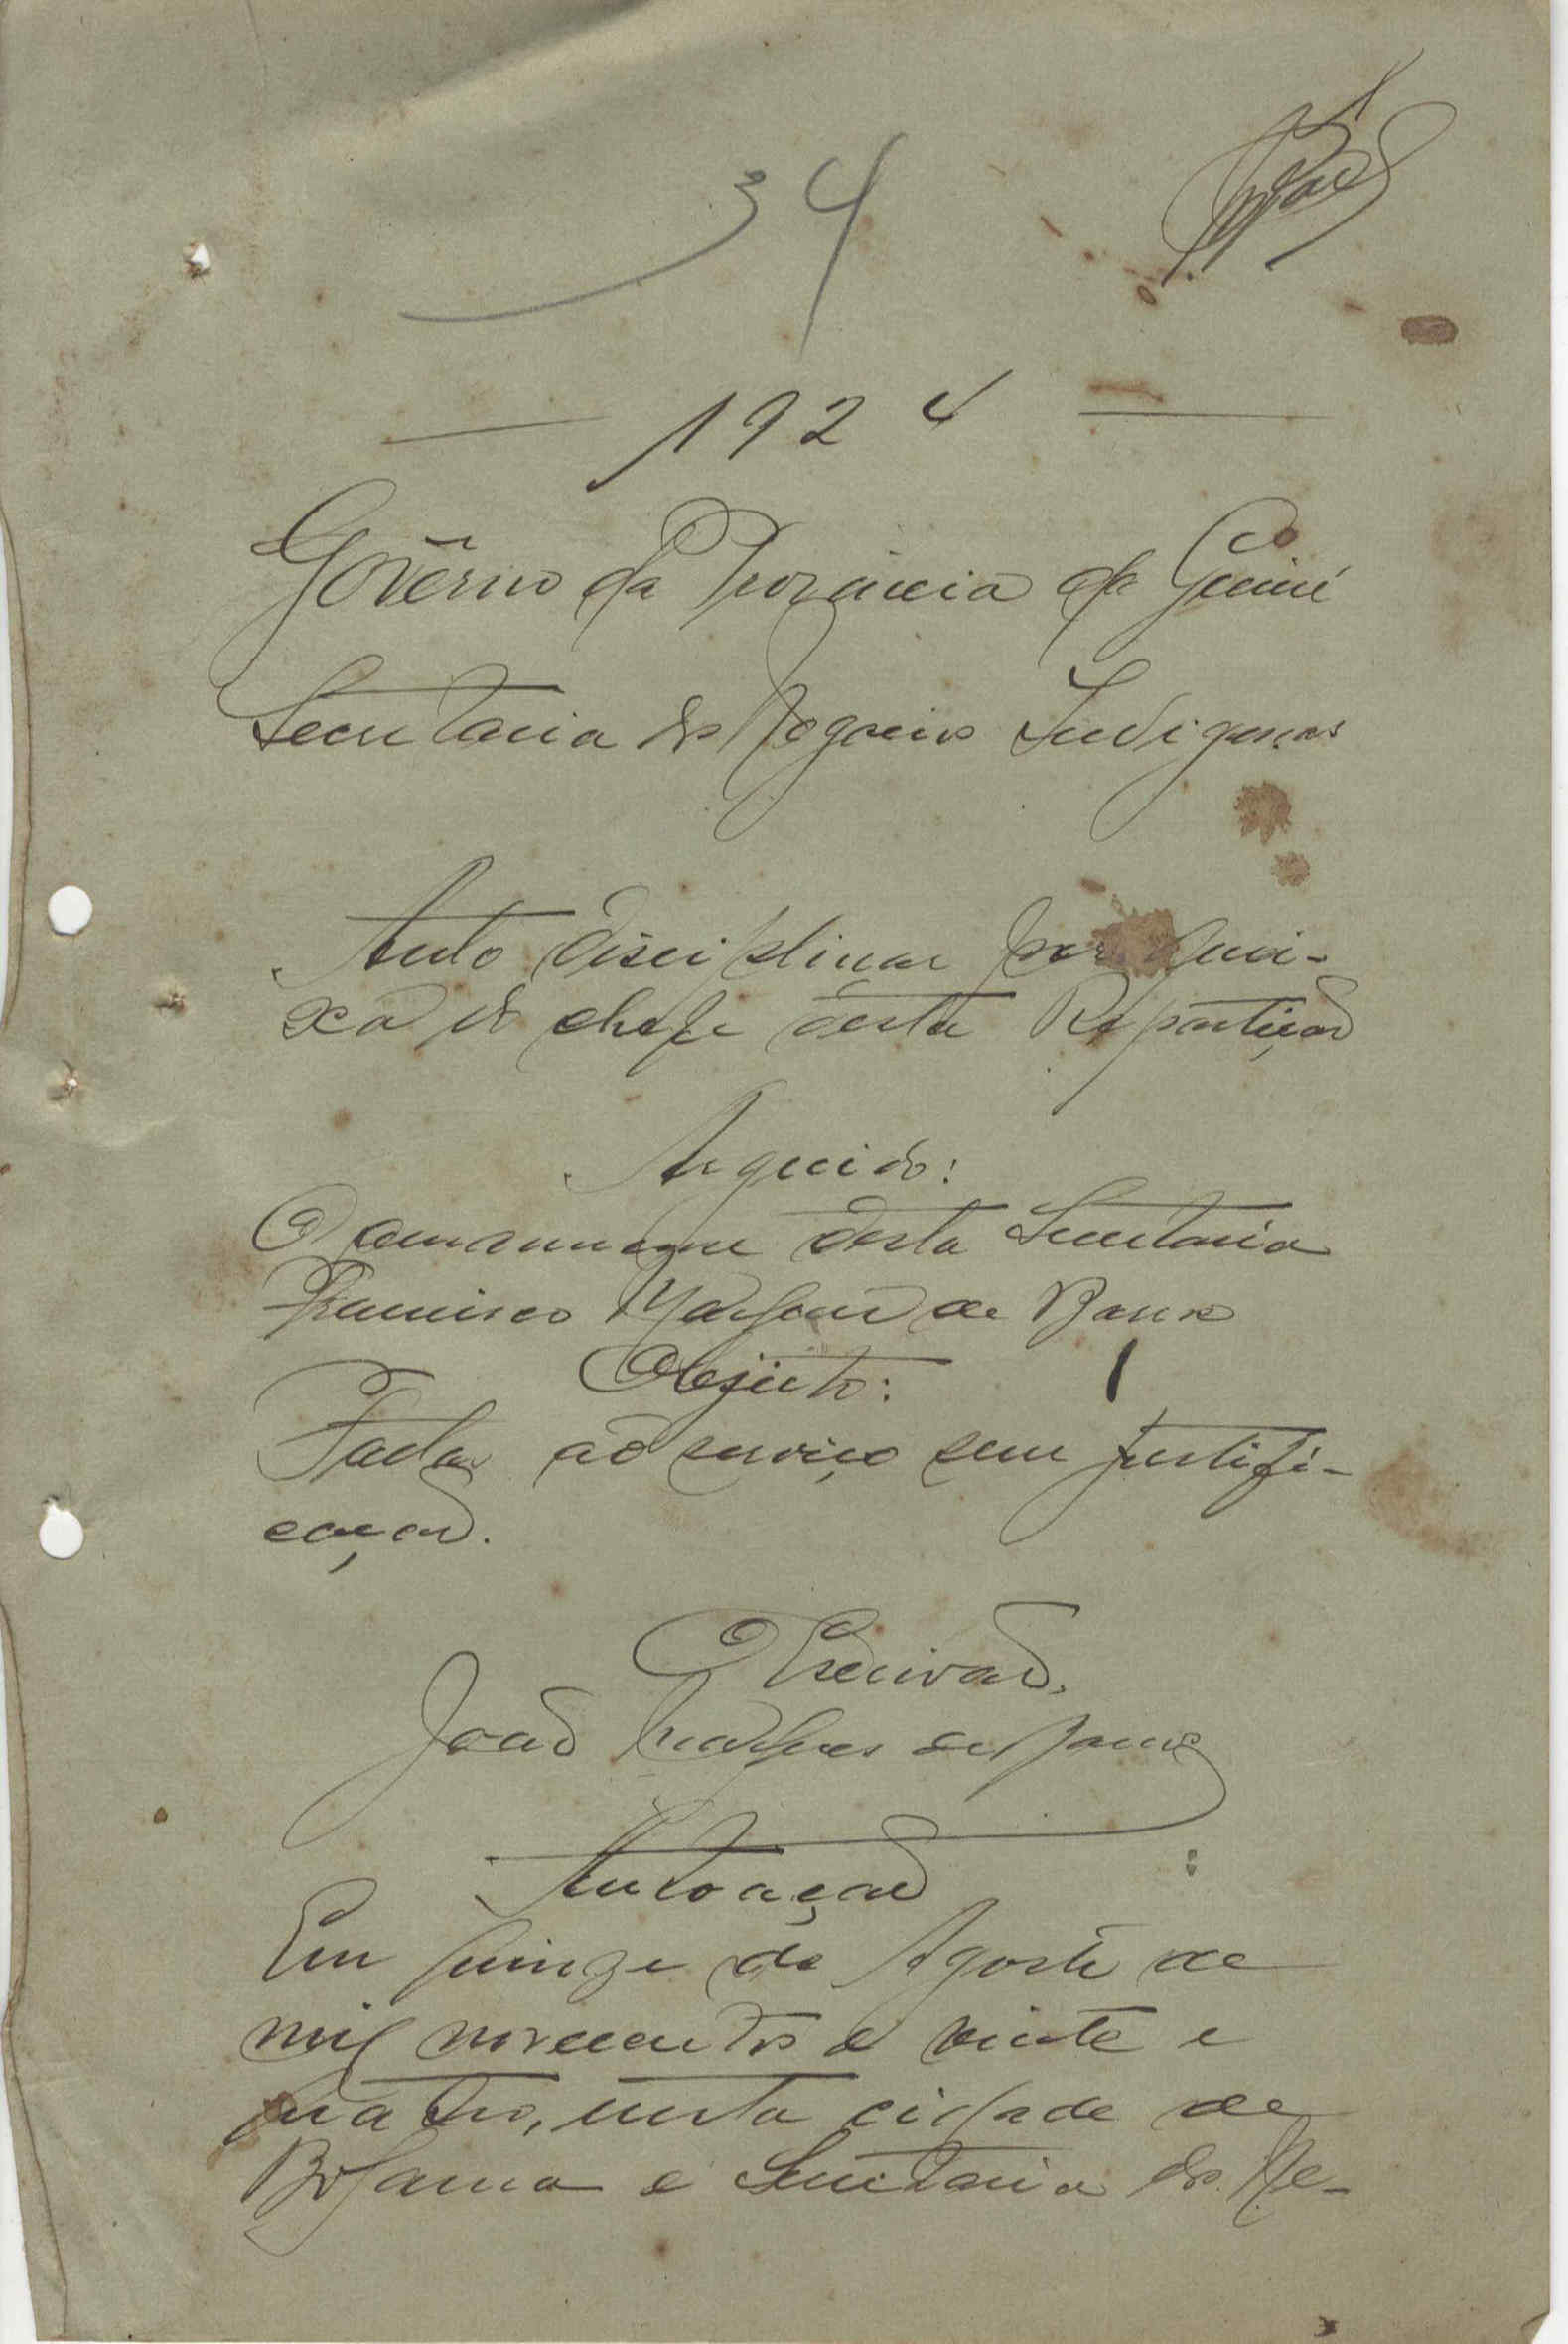 34
1924
Govêrno da Provincia da Guiné
Secretaria dos Negocios Indigenas
Auto disciplinar por quei-
xa do chefe desta Repartição
Arguido:
O amanuense desta Secretaria
Francisco de Barros
Objecto:
Faltas ao serviço sem justifi-
cação.
O Escrivão,
João
Autoação
Em quinze de Agosto de
mil novecentos e vinte e
quatro, nesta cidade de
Bolama e Secretaria dos Ne-